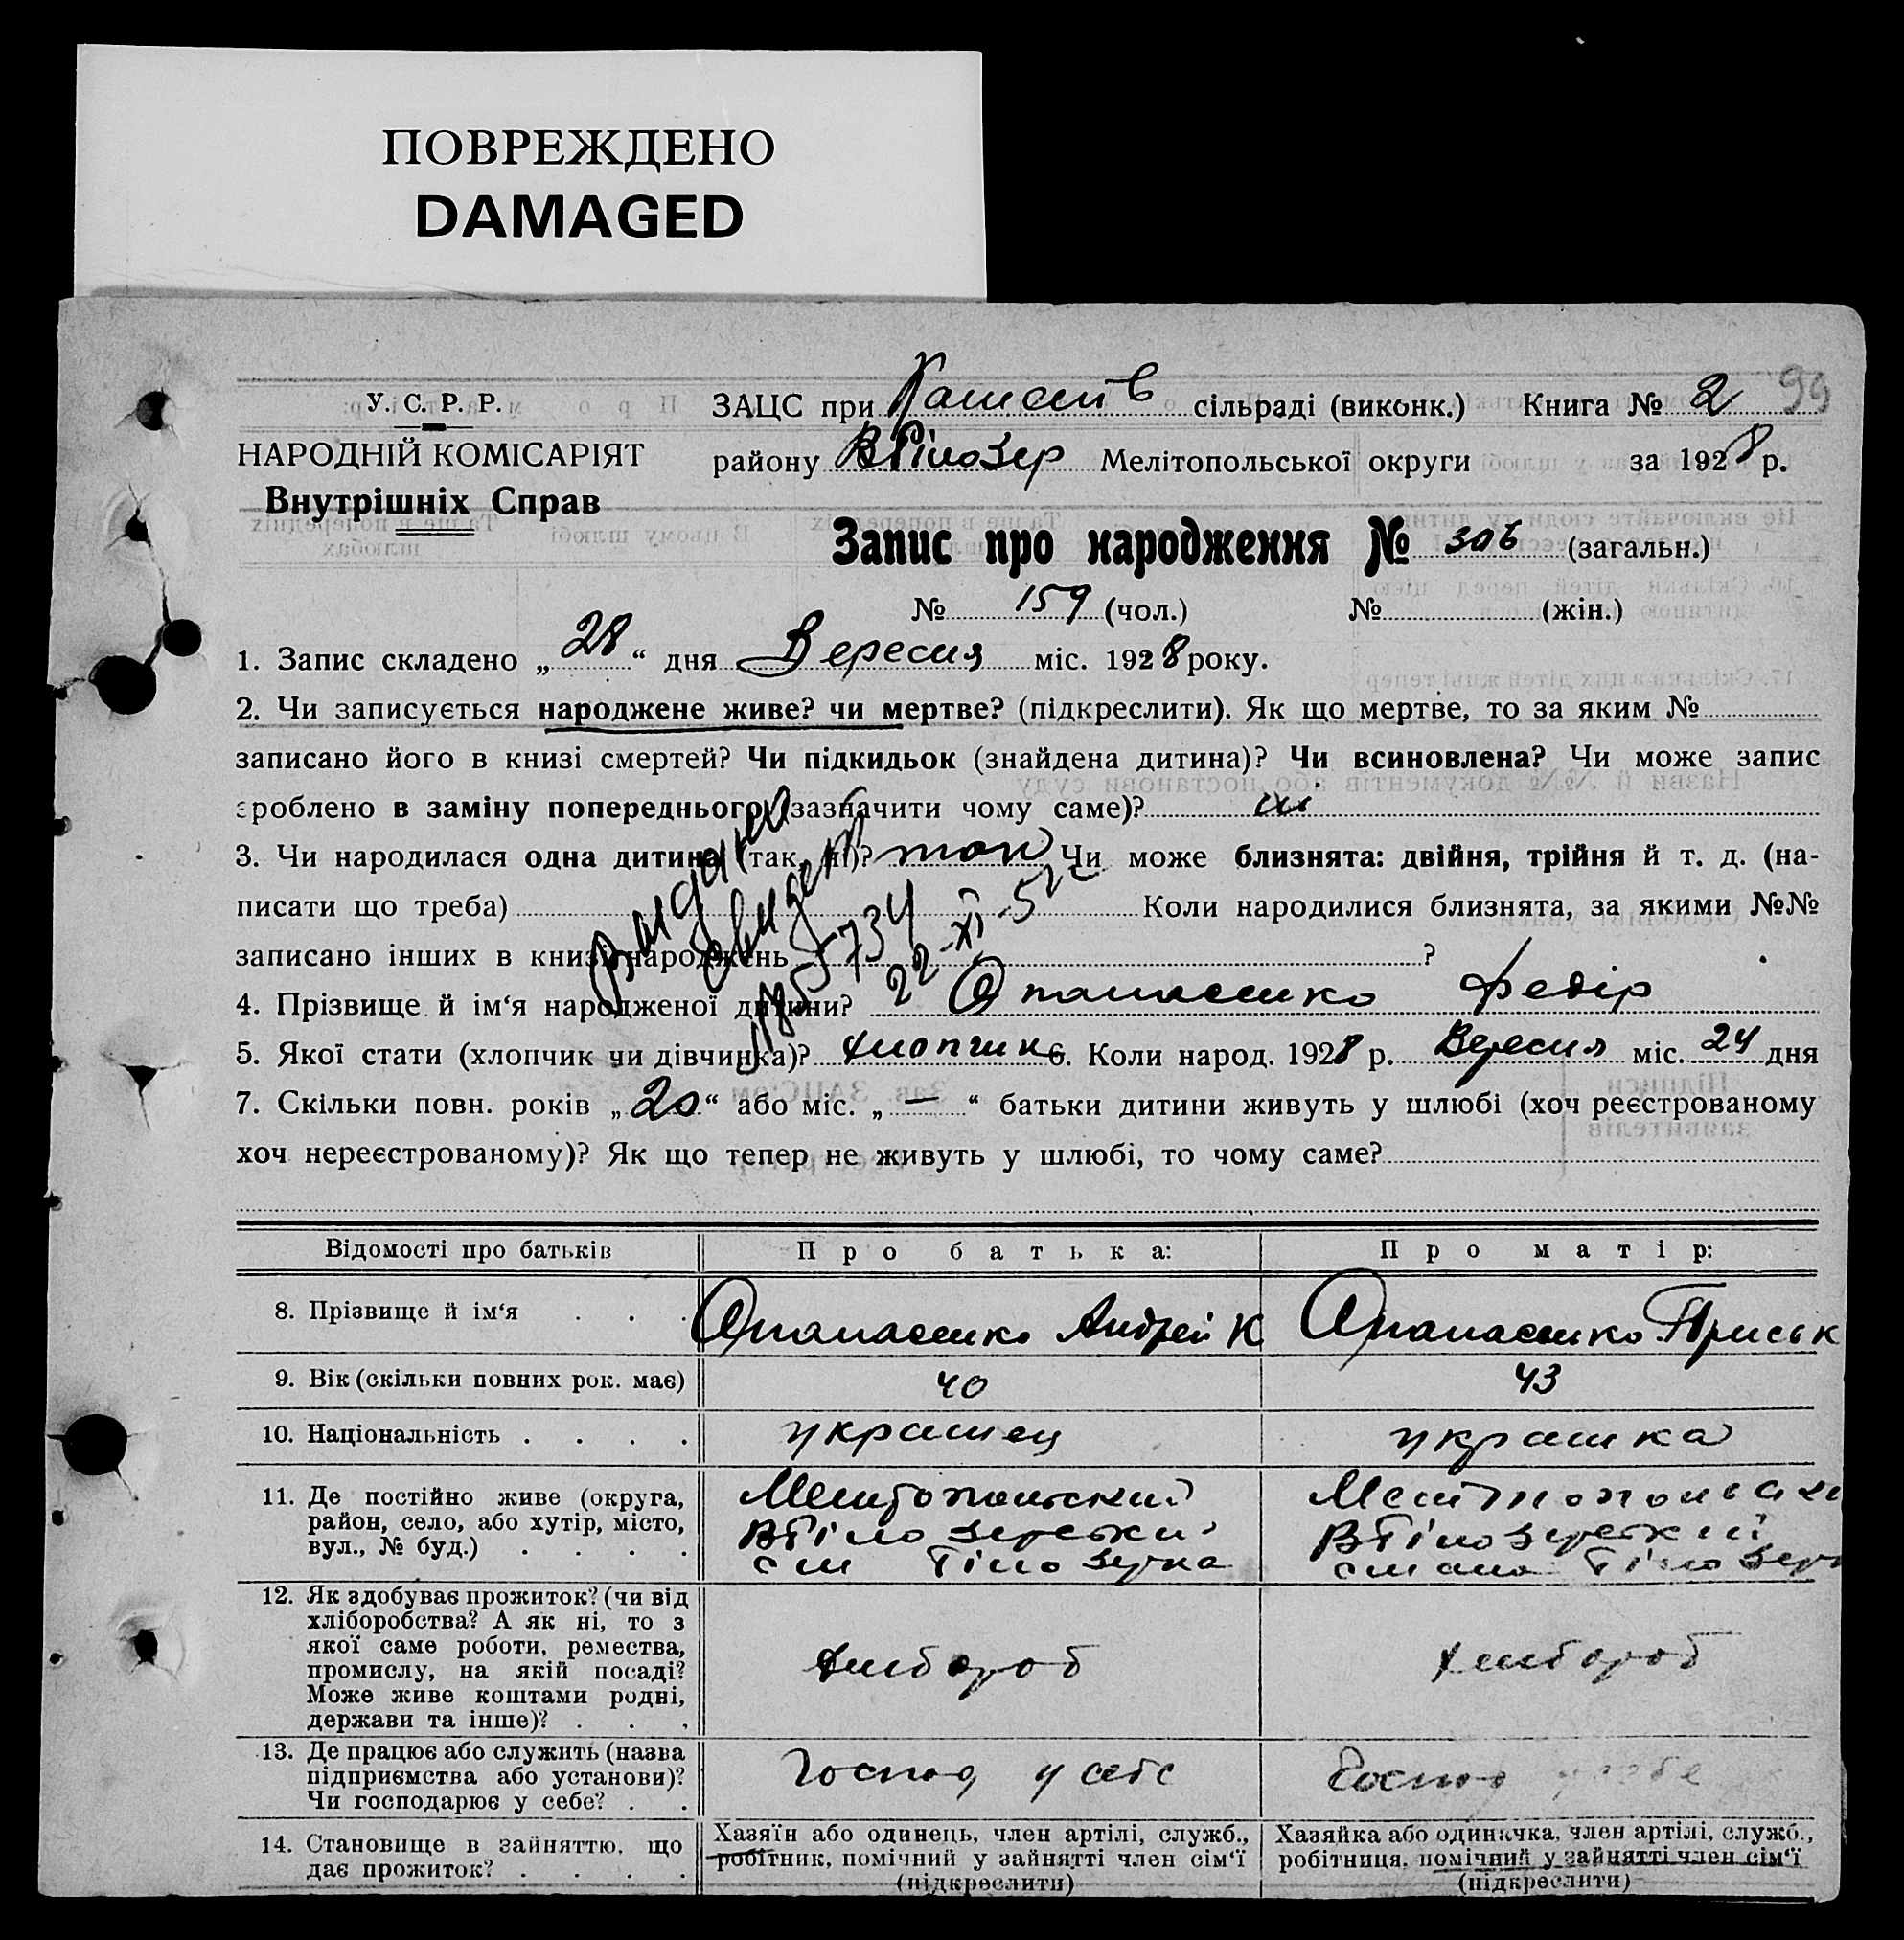 ПОВРЕЖДЕНО
DAMAGED
У. С. Р. Р.
НАРОДНІЙ КОМІСАРІЯТ
Внутрішніх Справ
ЗАЦС при сільраді (виконк.) Книга № 2 99
району ВБілозер Мелітопольської округи за 1928 р.
Запис про народження № 306 (загальн.)
№ 159 (чол.) № (жін.)
1. Запис складено „28“ дня Вересня міс. 1928 року.
2. Чи записується народжене живе? чи мертве? (підкреслити). Як що мертве, то за яким №
записано його в книзі смертей? Чи підкидьок (знайдена дитина)? Чи всиновлена? Чи може запис
зроблено в заміну попереднього (зазначити чому саме)? ні
3. Чи народилася одна дитина (так, ні)? так Чи може близнята: двійня, трійня й т. д. (на-
писати що треба) Коли народилися близнята, за якими №№
записано інших в книзі народжень ?
22-XI-52
4. Прізвище й ім‘я народженої дитини? Опанасенко Федір
5. Якої стати (хлопчик чи дівчинка)? хлопчик 6. Коли народ. 1928 р. Вересня міс. 24 дня
7. Скільки повн. років „20“ або міс. „—“ батьки дитини живуть у шлюбі (хоч реєстрованому
хоч нереєстрованому)? Як що тепер не живуть у шлюбі, то чому саме?
Відомості про батьків Про батька: Про матір:
8. Прізвище й ім‘я . . . Опанасенко Андрей К Опанасенко Приськ
9. Вік (скільки повних рок. має) 40 43
10. Національність . . . . украинец украинка
11. Де постійно живе (округа,
район, село, або хутір, місто,
вул., № буд.) . . . .
Мелитопольский
ВБілозерський
Білозерка
ВБілозерский
12. Як здобуває прожиток? (чи від
хліборобства? А як ні, то з
якої саме роботи, ремества,
промислу, на якій посаді?
Може живе коштами родні,
держави та інше)? . . .
хлибороб хлибороб
13. Де працює або служить (назва
підприємства або установи)?
Чи господарює у себе? . .
Господ у себе Господ у себе
14. Становище в зайняттю, що
дає прожиток? . . . .
Хазяїн або одинець, член артілі, служб.,
робітник, помічний у зайнятті член сім‘ї
(підкреслити)
Хазяйка або одиначка, член артілі, служб.,
робітниця, помічний у зайнятті член сім‘ї
(підкреслити)